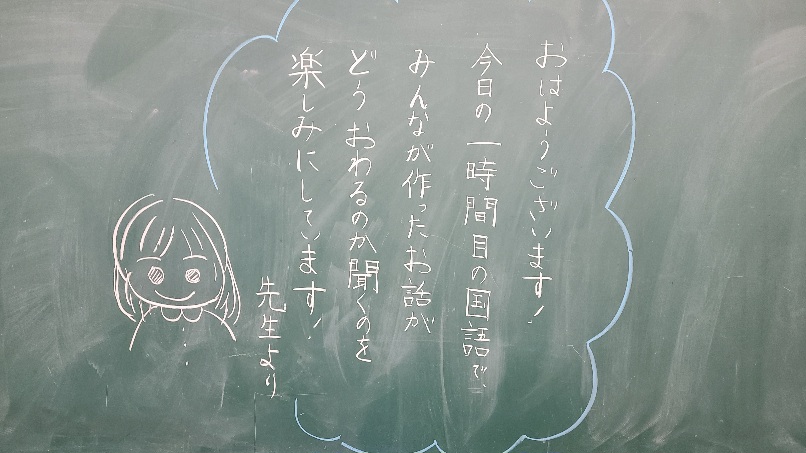 おはようございます!
今日の一時間目の国語で、
みんなが作ったお話が
どうおわるのか聞くのを
楽しみにしています!
先生より